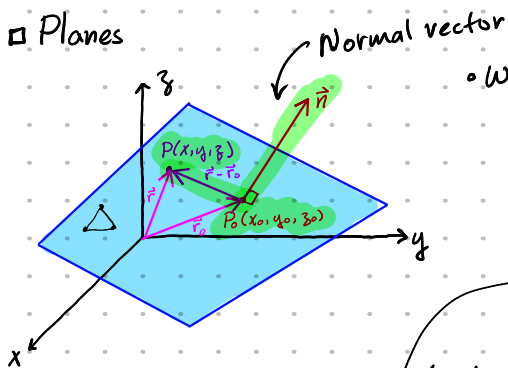 Planes
Normal vector
• W
z
n⃗
P(x,y,z)
r⃗ - r⃗₀
r⃗
r⃗₀
P₀(x₀,y₀,z₀)
y
x